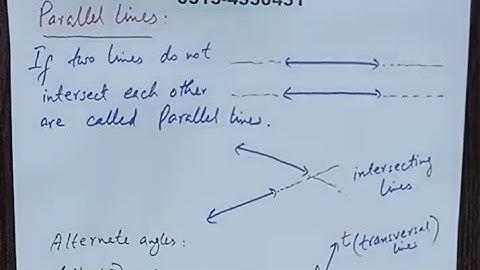 Parallel Lines:
If two lines do not
intersect each other
are called Parallel lines.
intersecting
lines
Alternate angles:
t (transversal
line)